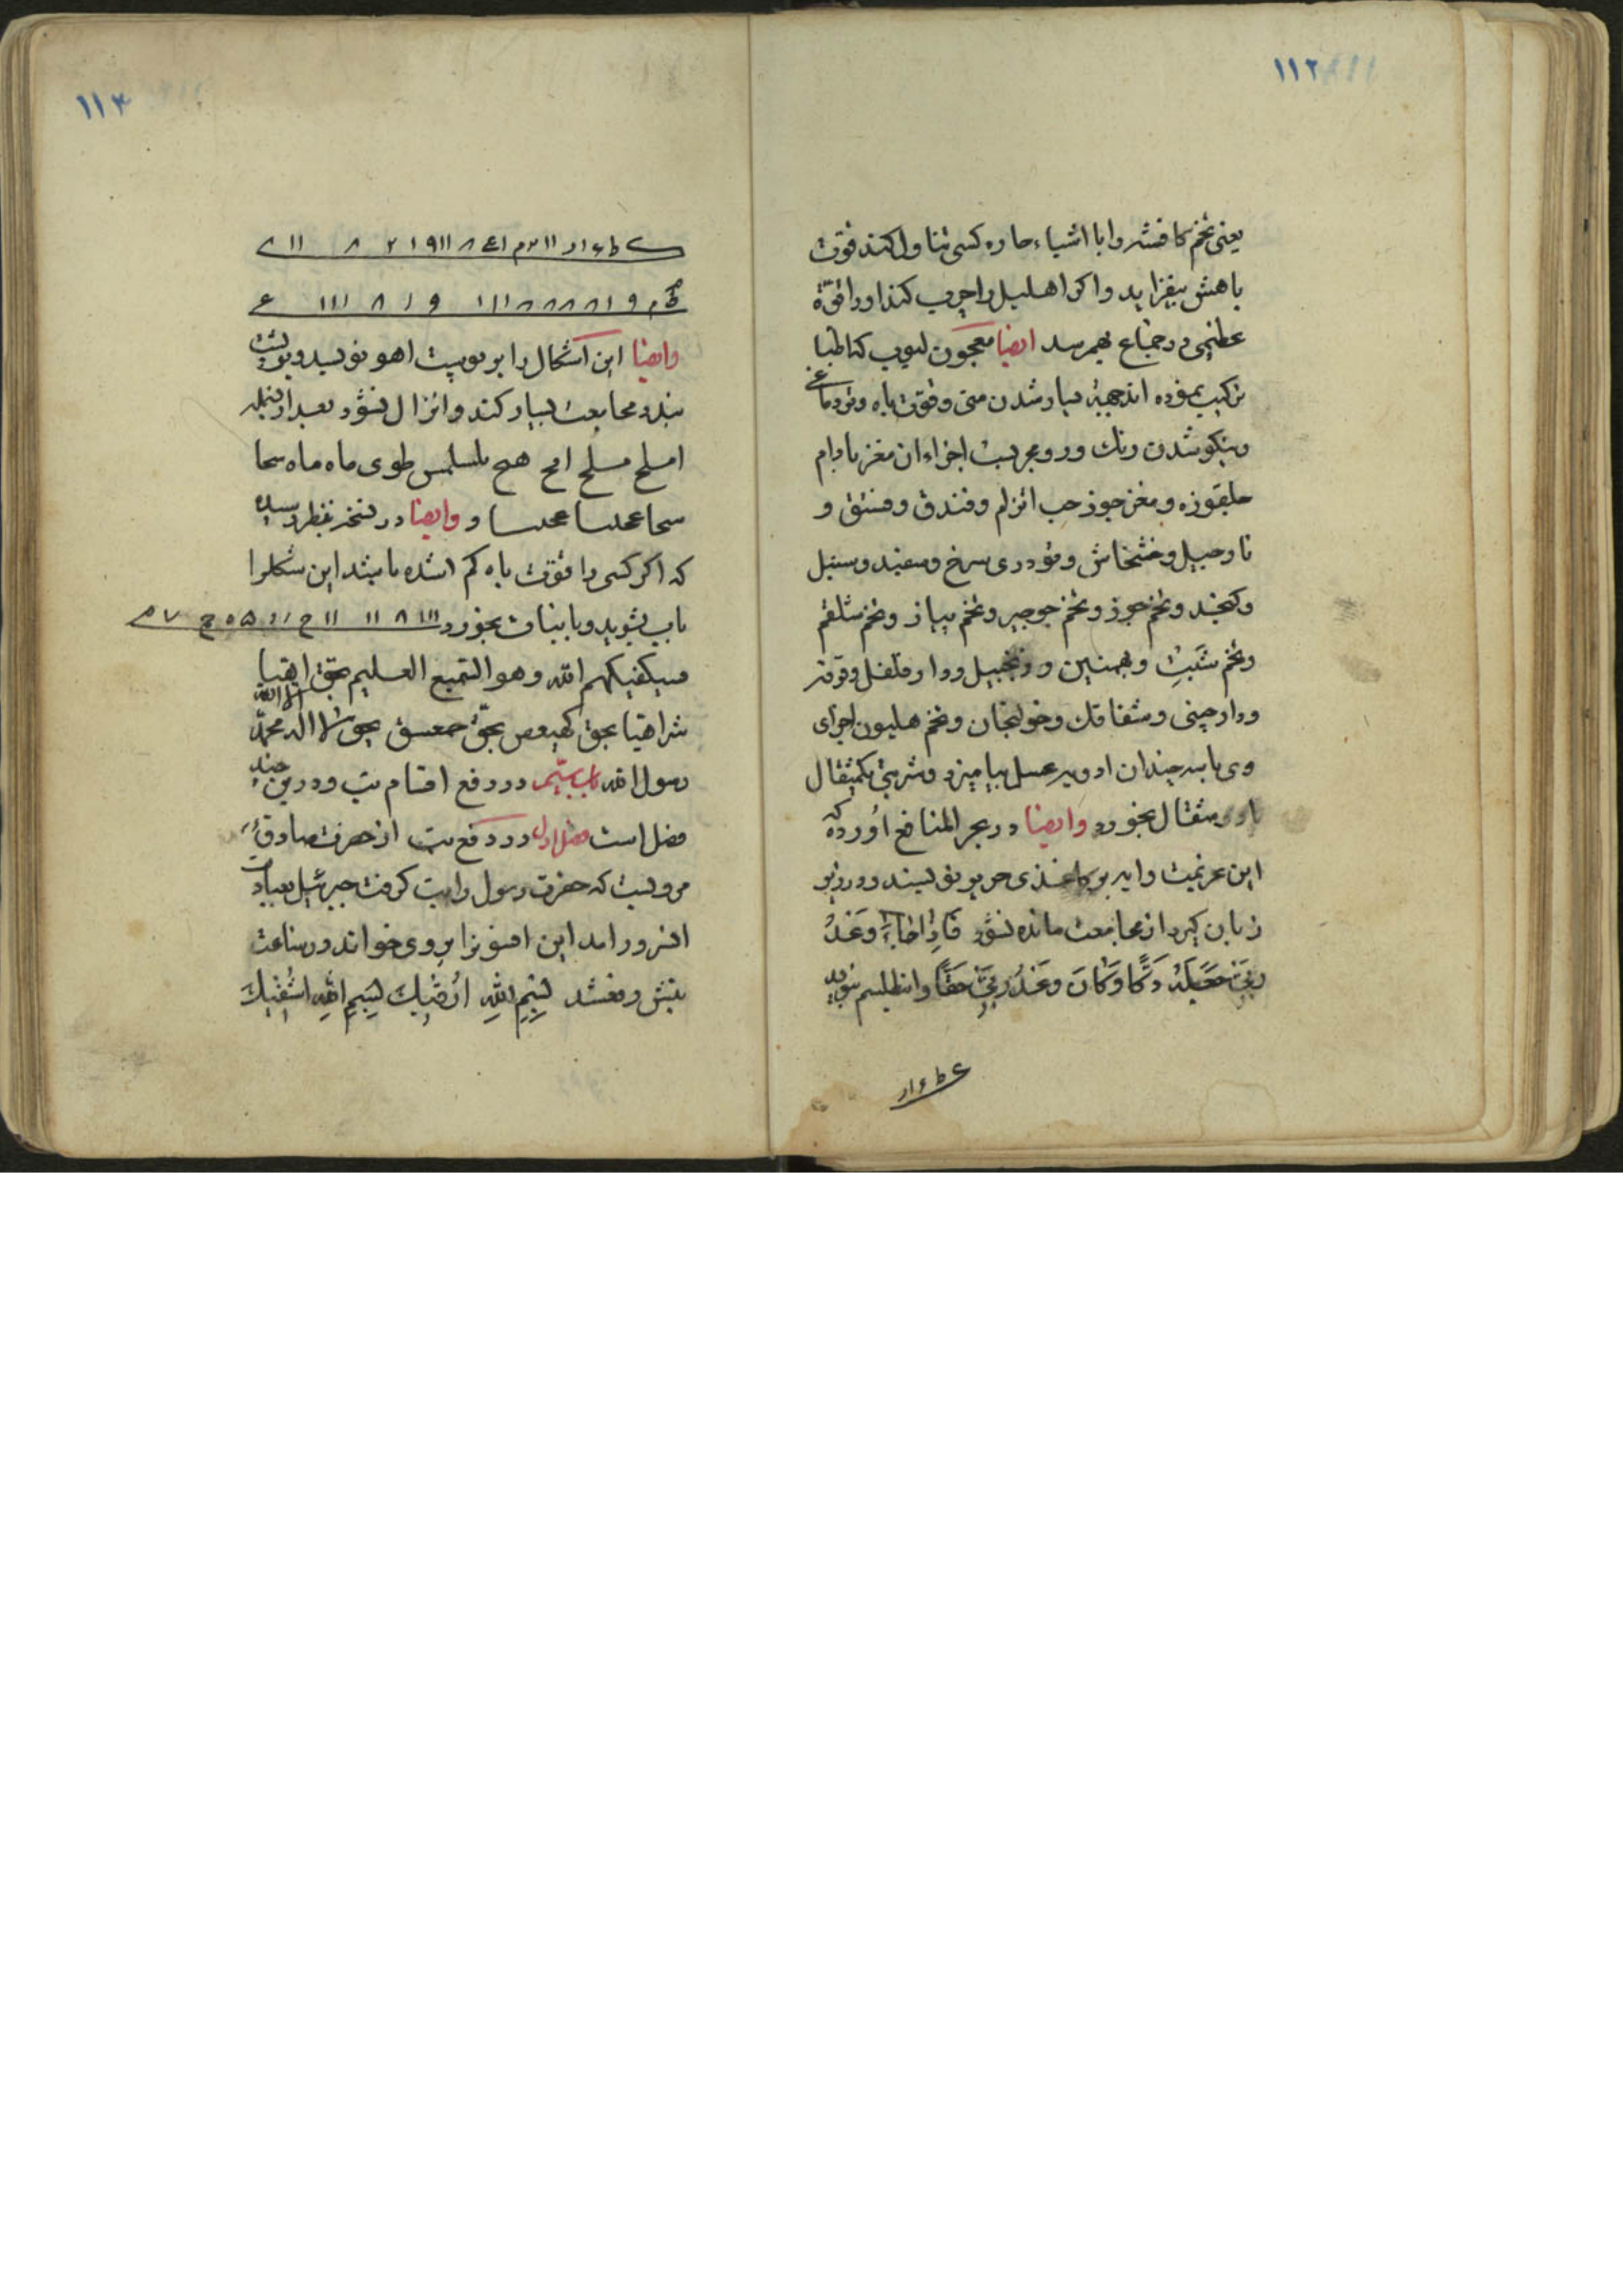 ۱۱۲
یعنی تخم کافشه را با اشیاء حاره کسی تناول کند قوت
باهش بیفزاید و اکر اهلیل را چرب کند او را قوة
عظیمی در جماع بهم رسد ایضا معجون لبوب که اطبا
ترکیب نموده اند جهة بسیار شدن منی و قوت باه و تردماغی
و نیکو شدن رنك و رو مجربست اجزاء ان مغز بادام
جلغوزه و مغز جوز حب الزلم و فندق و فستق و
نارجیل و خشخاش و تودری سرخ و سفید و سنبل
و کنجد و تخم جوز و تخم جرجیر و تخم پیاز و تخم شلغم
و تخم شبت و بهمنین و زنجبیل و دار فلفل و قرفه
و دارچینی و شقاقل و خولنجان و تخم هلیون اجزای
وی با سه چندان ادویه عسل بیامیزد و شربتی یکمثقال
یا دو مثقال بخورد وایضا در بحر المنافع اورده که
این عزیمت را بر کاغذی حریر نویسند و در زیر
زبان کیرد از مجامعت مانده نشود فَاِذا جاءَ وَعَدُ
رَبّی جَعَلَهُ دَکّا وَکانَ وَعَدُ رَبّی حَقّاً و انطلسم
۱۱۳
وایضا این اشکال را بر پوست اهو نویسد و
بندد مجامعت بسیار کند و انزال نشود بعد از
املح مسلح امح هیح ملسلمس طوی ماه ماه سحا
سحا عحلسا عحلسا و وایضا در نسخه بنظر رسیده
که اکر کسی را قوت باه کم شده باشد این شکل را
باب بشوید و با نبات بخورد
فسیکفیکهم الله وهو السمیع العلیم بحق اهیا
شراهیا بحق کهیعص بحق حمعسق بحق لا اله الا الله محمد
رسول الله باب بیستم در دفع اقسام تب و درین چند
فصل است فصل اول در دفع تب از حضرت صادق
مرویست که حضرت رسول را تب کرفت جبرئیل بعیادت
انسرور امد این افسونرا بر وی خواند در ساعت
تبش دفع شد بِسْمِ اللهِ اَرْقیكَ بِسْمِ اللهِ اَشْفیكَ